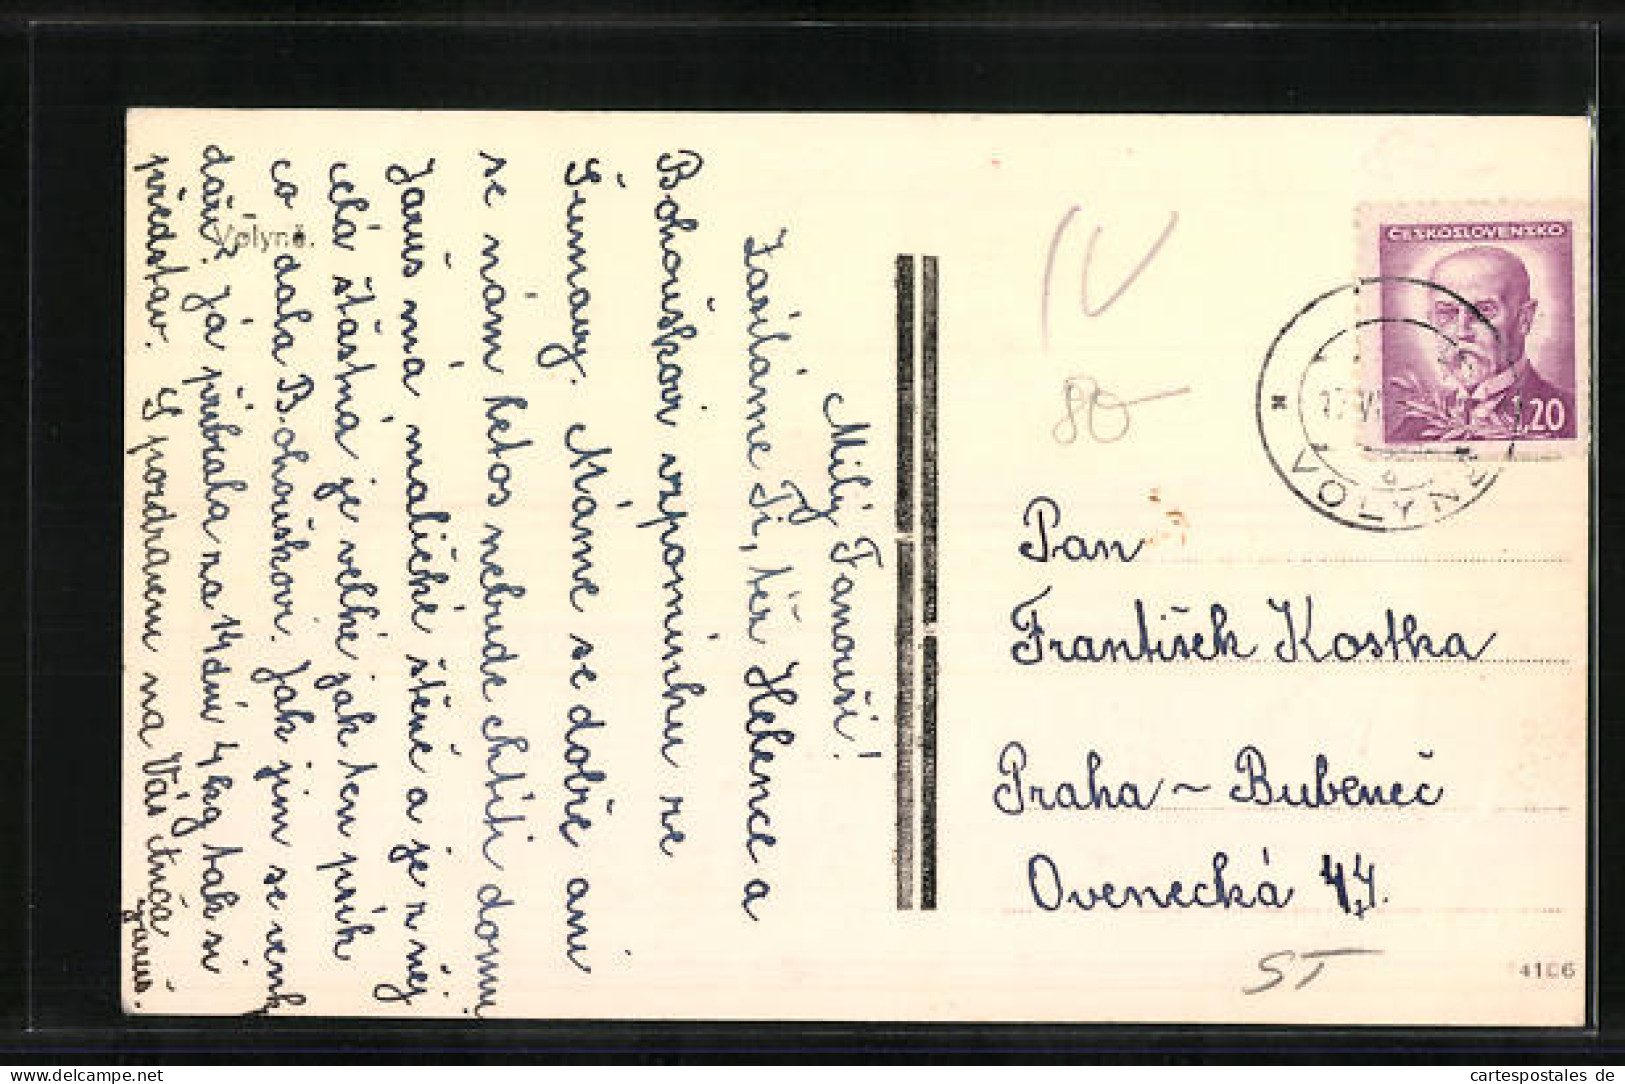 Milý Fanouši!
Zasíláme Ti, též Helence a
Bohouškovi vzpomínku ze
Šumavy. Máme se dobře ani
se nám letos nebude chtíti domů
Jarus má maličké štěně a je z něj
celá šťastná je velké jak ten psík
co dala Bohouškovi. Jak jim se venk
daří? Já přibrala za 14 dní 4 kg tak si
představ. S pozdravem na Vás Anča
Jarus.
Volyně.
ČESKOSLOVENSKO
1.20
VOLYNĚ
IV
80-
Pan
František Kostka
Praha ~ Bubeneč
Ovenecká 44.
ST
4106
www.cartespostales.eu
cartespostales de